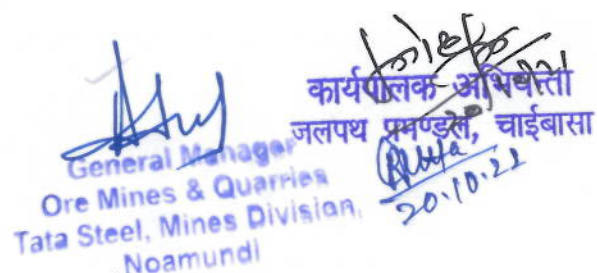 General Manager
Ore Mines & Quarries
Tata Steel, Mines Division,
Noamundi
कार्यपालक अभियन्ता
जलपथ प्रमण्डल, चाईबासा
20.10.22